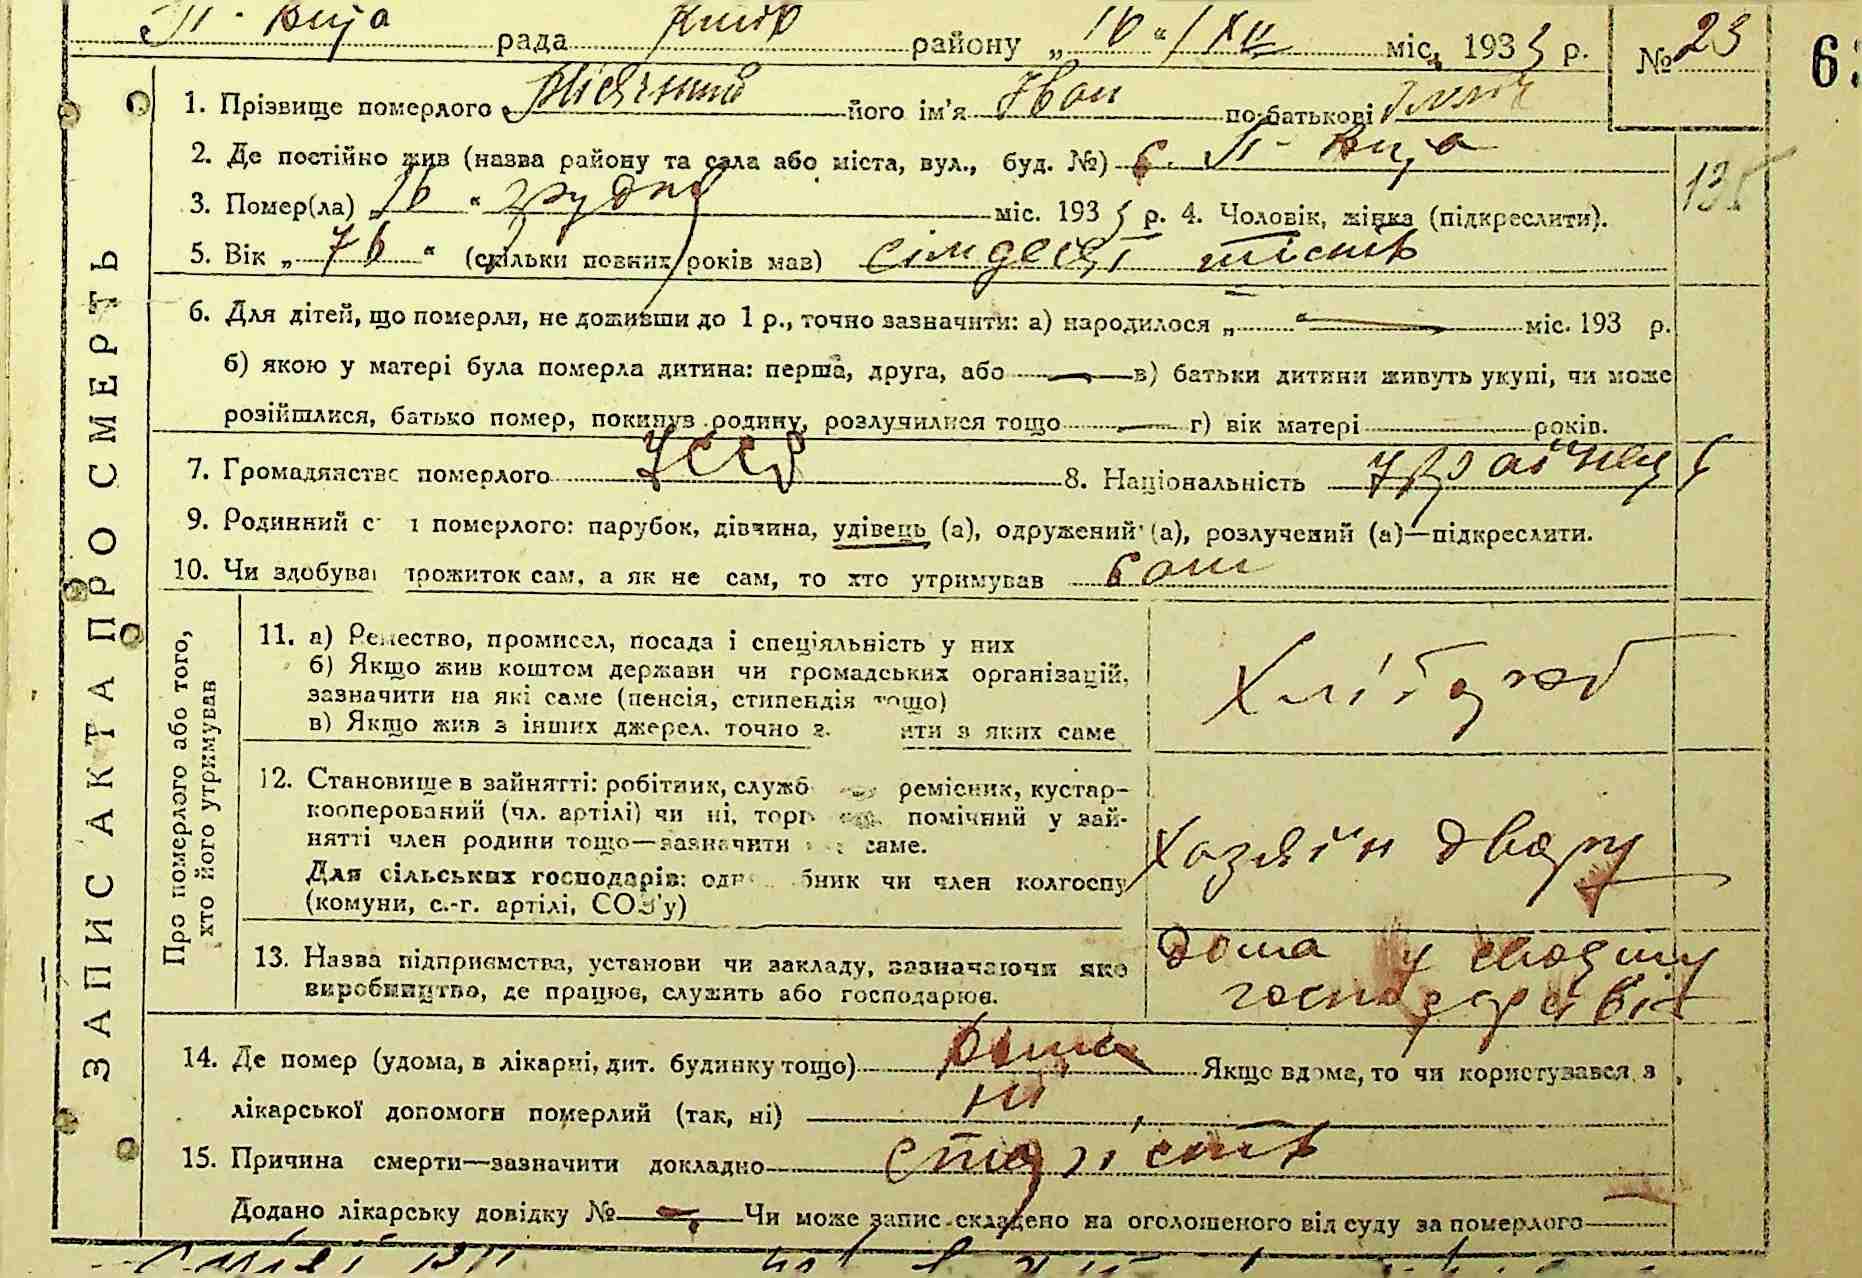 рада району „ 16 “ / XII міс. 1933 р. № 23
ЗАПИС АКТА ПРО СМЕРТЬ
1. Прізвище померлого його ім'я Іван по-батькові
2. Де постійно жив (назва району та села або міста, вул., буд. №) с.
3. Помер(ла) „ 16 “ грудня міс. 1933 р. 4. Чоловік, жінка (підкреслити).
5. Вік „ 76 “ (скільки повних років мав) сімдесят шість
6. Для дітей, що померли, не доживши до 1 р., точно зазначити: а) народилося „ “ — міс. 193 р.
б) якою у матері була померла дитина: перша, друга, або — в) батьки дитини живуть укупі, чи може
розійшлися, батько помер, покинув родину, розлучилися тощо — г) вік матері років.
7. Громадянство померлого УССР 8. Національність українец
9. Родинний померлого: парубок, дівчина, удівець (а), одружений (а), розлучений (а)—підкреслити.
10. Чи здобував прожиток сам, а як не сам, то хто утримував сам
Про померлого або того,
хто його утримував
11. а) Ремество, промисел, посада і спеціяльність у них
б) Якщо жив коштом держави чи громадських організацій,
зазначити на які саме (пенсія, стипендія тощо)
в) Якщо жив з інших джерел, точно з яких саме
Хлібороб
12. Становище в зайнятті: робітник, служб ремісник, кустар-
кооперований (чл. артілі) чи ні, торг помічний у зай-
нятті член родини тощо—зазначити саме.
Для сільських господарів: одн бник чи член колгоспу
(комуни, с.-г. артілі, СОЗ'у)
Хозяїн двору
13. Назва підприємства, установи чи закладу, зазначаючи яке
виробництво, де працює, служить або господарює.
дома у своєму
господарстві
14. Де помер (удома, в лікарні, дит. будинку тощо) дома Якщо вдома, то чи користувався з
лікарської допомоги померлий (так, ні) ні
15. Причина смерти—зазначити докладно старість
Додано лікарську довідку № — Чи може запис складено на оголошеного від суду за померлого